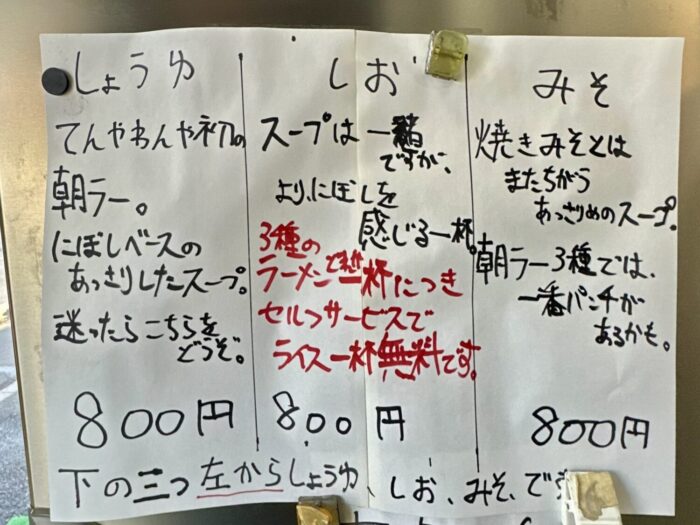 しょうゆ
てんやわんや初の
朝ラー。
にぼしベースの
あっさりしたスープ。
迷ったらこちらを
どうぞ。
800円
しお
スープは一緒
ですが、
より、にぼしを
感じる一杯。
3種の
ラーメン一杯につき
セルフサービスで
ライス一杯無料です。
800円
みそ
焼きみそとは
またちがう
あっさりめのスープ。
朝ラー3種では、
一番パンチが
あるかも。
800円
下の三つ左からしょうゆ、しお、みそ、です